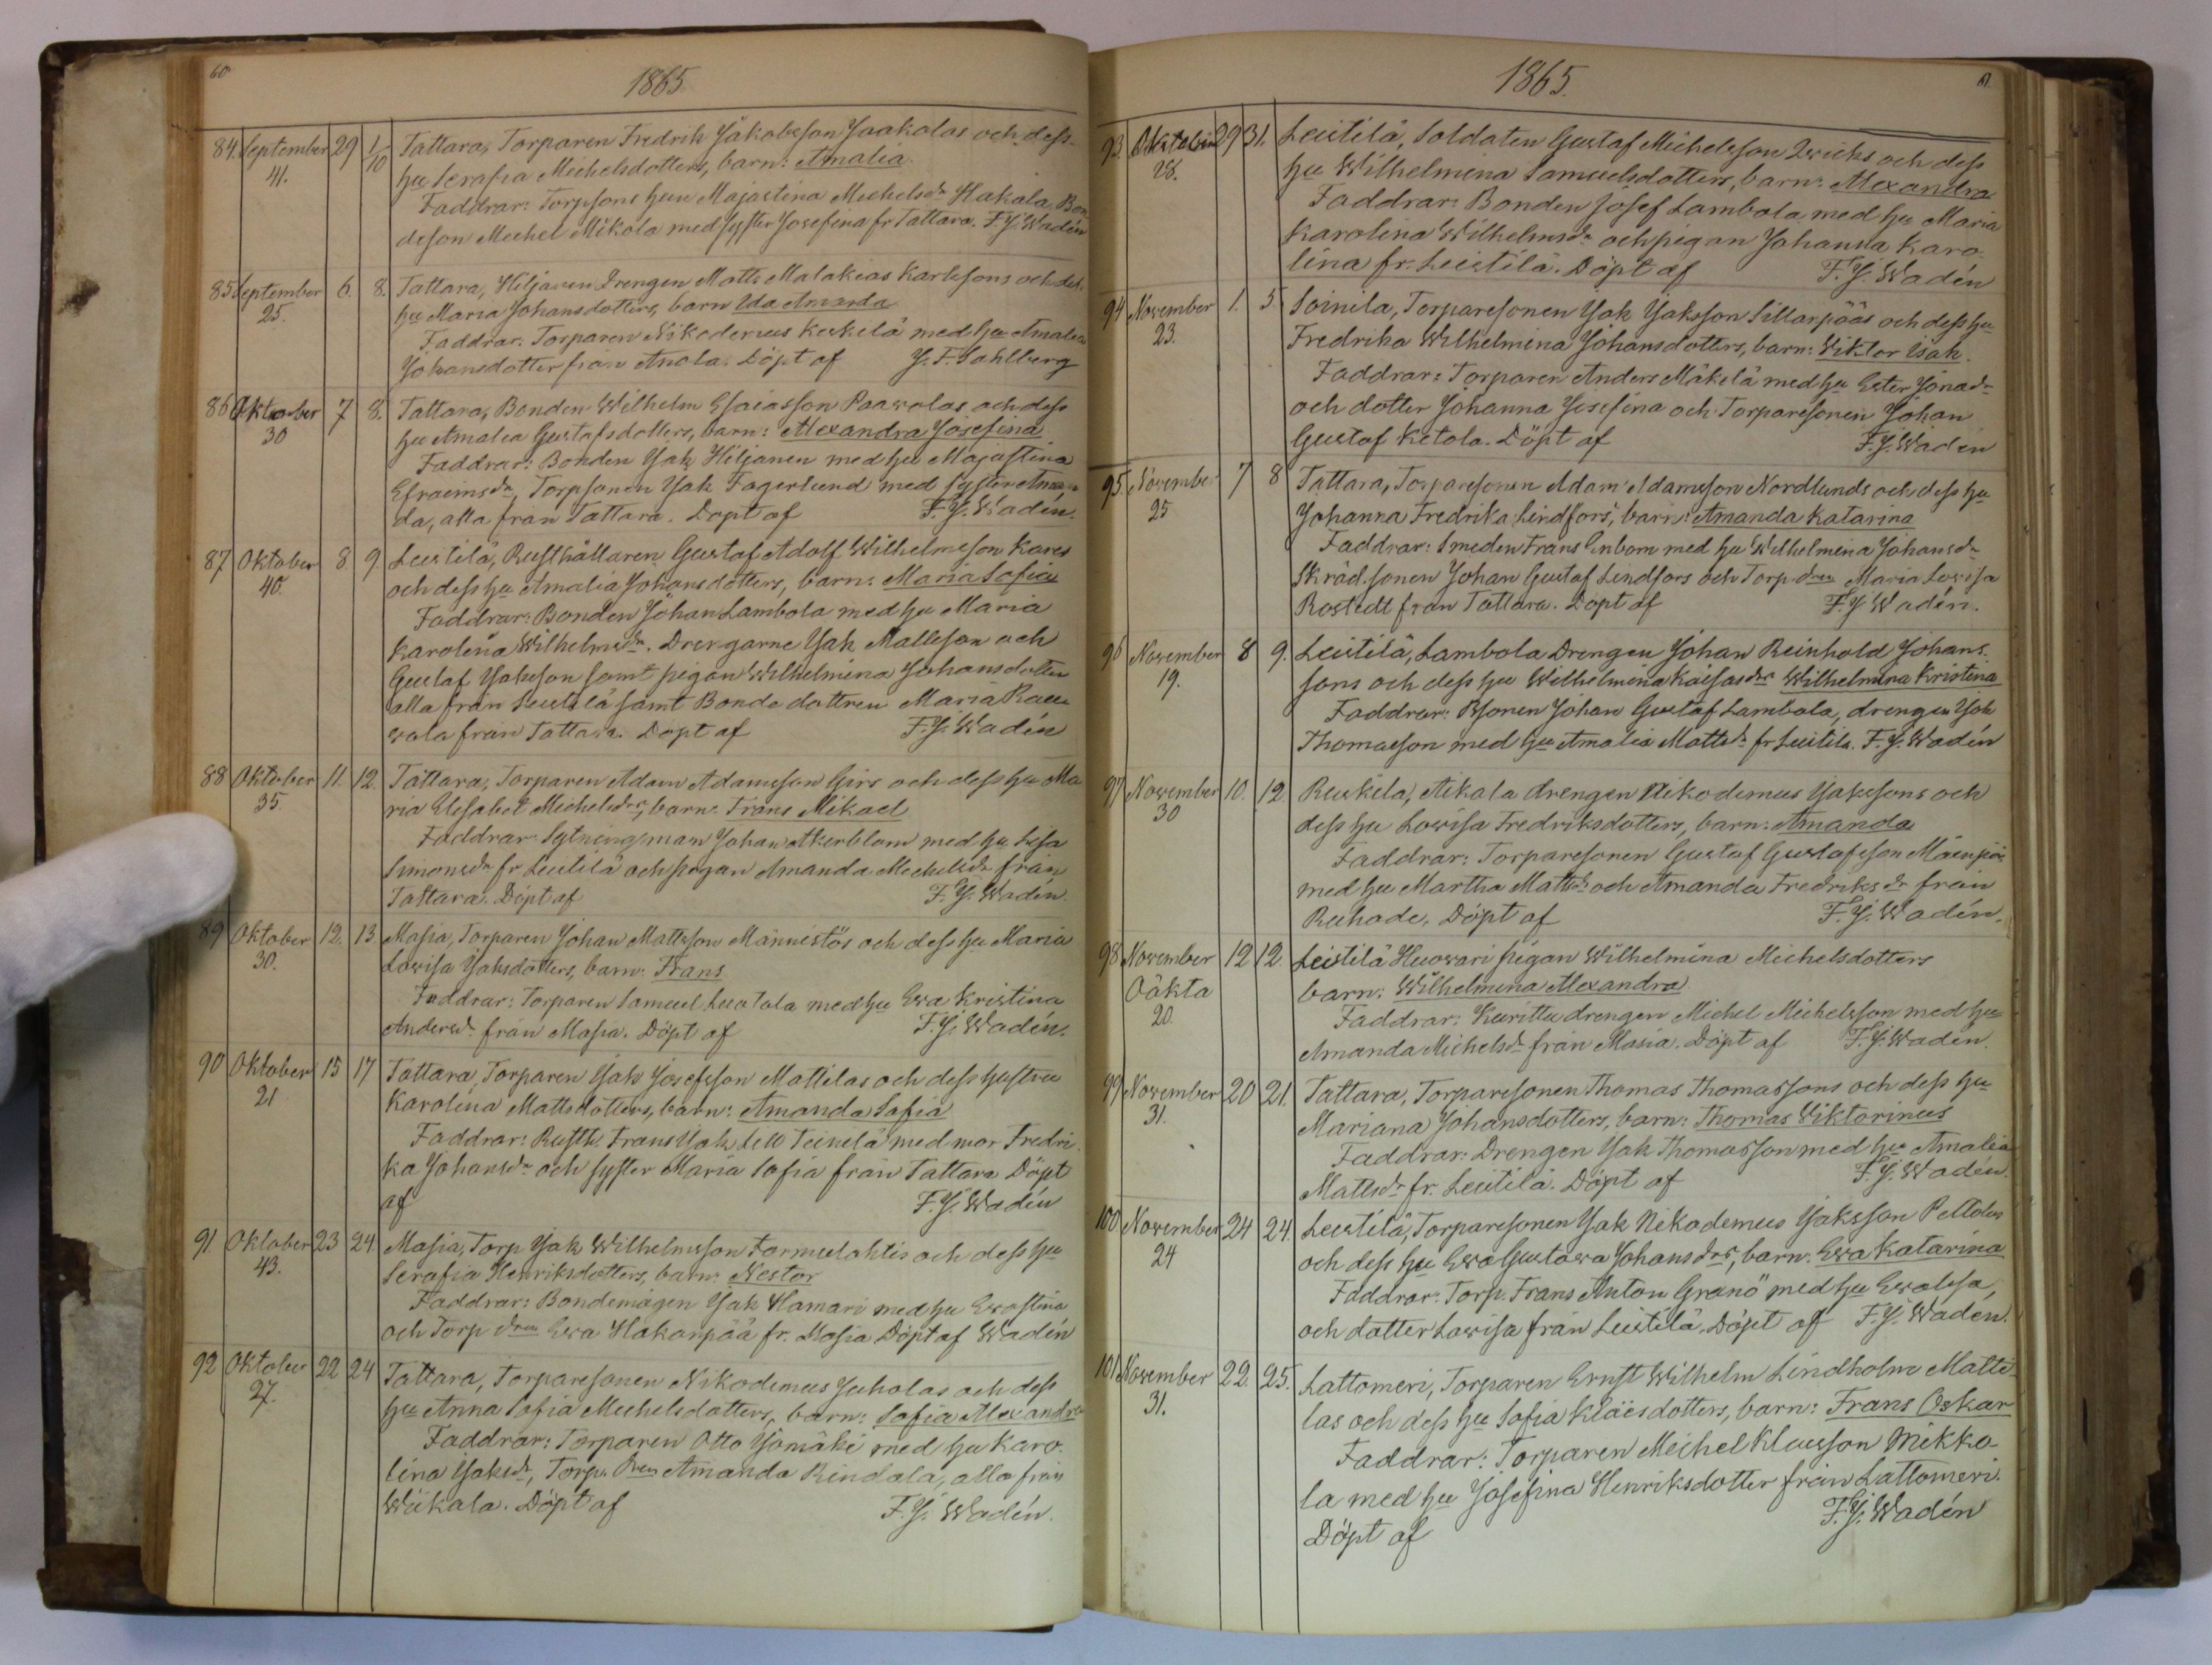 60
1865
84. September 29 1/10 Tattara, Torparen Fredrik Jakobsson Jaakolas och dess
41. hu Serafia Michelsdotters, barn: Amalia
Faddrar: Torpsons hun Majastina Michelsdr Hakala, Bon-
deson Michel Mikola med syster Josefina fr Tattara. F.J. Wadén
85 September 6. 8. Tattara, Hiljanen Drengen Matts Malakias Karlssons och dess
25. hu Maria Johansdotters, barn Ida Amanda
Faddrar: Torparen Nikodemus Keskelä med hu Amalia
Johansdotter från Anola. Döpt af J.F. Sahlberg
86 Oktober 7 8. Tattara, Bonden Wilhelm Esaiasson Paawolas och dess
30 hu Amalia Gustafsdotters, barn: Alexandra Josefina
Faddrar: Bonden Isak Hiljanen med hu Majastina
Efraimsdr, Torpsonen Isak Fagerlund med syster Aman-
da, alla från Tattara. Döpt af F.J. Wadén.
87 Oktober 8 9 Leistilä, Rusthållaren Gustaf Adolf Wilhelmsson Kares
40. och dess hu Amalia Johansdotters, barn: Maria Sofia
Faddrar: Bonden Johan Lambola med hu Maria
Karolina Wilhelmsdr. Drengarne Isak Mattsson och
Gustaf Isaksson samt pigan Wilhelmina Johansdotter
alla från Leistilä samt Bondedottren Maria Rau-
wola från Tattara. Döpt af F.J. Wadén
88 Oktober 11. 12. Tattara, Torparen Adam Adamsson Girs och dess hu Ma
35. ria Elisabet Michelsdrs, barn: Frans Mikael
Faddrar: Sytningsman Johan Akerblom med hu Lisa
Simonsdr fr Leistilä och pigan Amanda Michelsdr från
Tattara. Döpt af F.J. Wadén.
89 Oktober 12. 13. Masia, Torparen Johan Mattsson Männistös och dess hu Maria
30. Lowisa Isaksdotters, barn: Frans
Faddrar: Torparen Samuel Luotola med hu Ewa Kristina
Andersdr från Masia. Döpt af F.J. Wadén.
90 Oktober 15 17 Tattara, Torparen Isak Josefsson Mattilas och dess hustru
21 Karolina Mattsdotters, barn: Amanda Sofia
Faddrar: Rusth. Frans Isak Lill Teinilä med mor Fredri-
ka Johansdr och syster Maria Sofia från Tattara Döpt
af F.J. Wadén
91 Oktober 23 24. Masia, Torp Isak Wilhelmsson Tormulahtis och dess hu
43. Serafia Henriksdotters, barn: Nestor
Faddrar: Bondemågen Isak Hamari med hu Ewastina
och Torp dren Ewa Hakanpää fr. Masia Döpt af Wadén
92 Oktober 22 24 Tattara, Torparesonen Nikodemus Juholas och dess
27. hu Anna Sofia Michelsdotters, barn: Sofia Alexandra
Faddrar: Torparen Otto Isomäki med hu Karo-
lina Isaksdr, Torp. dren Amanda Rindala, alla från
Wiikala. Döpt af F.J. Wadén.
1865.
61.
93. Oktober 29 31. Leistilä, Soldaten Gustaf Michelsson Qwicks och dess
28. hu Wilhelmina Samuelsdotters, barn: Alexandra
Faddrar: Bonden Josef Lambola med hu Maria
Karolina Wilhelmsdr och pigan Johanna Karo-
lina fr. Leistilä. Döpt af F.J. Wadén
94 November 1. 5 Soinila, Torparesonen Isak Isaksson Sillanpääs och dess hu
23. Fredrika Wilhelmina Johansdotters, barn: Viktor Isak.
Faddrar: Torparen Anders Mäkelä med hu Ester Jonadr
och dotter Johanna Josefina och Torparesonen Johan
Gustaf Ketola. Döpt af F.J. Wadén
95. November 7 8 Tattara, Torparesonen Adam Adamsson Nordlunds och dess hu
25 Johanna Fredrika Lindfors, barn: Amanda Katarina
Faddrar: Smeden Frans Enbom med hu Wilhelmina Johansdr
Skräd.sonen Johan Gustaf Lindfors och Torp. dren Maria Lowisa
Rostedt från Tattara. Döpt af F.J. Wadén.
96 November 8 9. Leistilä, Lambola Drengen Johan Reinhold Johans-
19. sons och dess hu Wilhelmina Kaisasdrs Wilhelmina Kristina
Faddrar: Bsonen Johan Gustaf Lambola, drengen Isak
Thomasson med hu Amalia Mattsdr fr Leistilä. F.J. Wadén
97 November 10. 12. Ruskila, Aikala drengen Nikodemus Isakssons och
30 dess hu Lowisa Fredriksdotters, barn: Amanda
Faddrar: Torparesonen Gustaf Gustafsson Mäenpää
med hu Martha Mattsdr och Amanda Fredriksdr från
Ruhade. Döpt af F.J. Wadén.
98 November 12 12. Leistilä Huowari pigan Wilhelmina Michelsdotters
Oäkta barn: Wilhelmina Alexandra
20. Faddrar: Kurittu drengen Michel Michelsson med hu
Amanda Michelsdr från Masia. Döpt af F.J. Wadén.
99 November 20 21. Tattara, Torparesonen Thomas Thomassons och dess hu
31. Mariana Johansdotters, barn: Thomas Viktorinus
Faddrar: Drengen Isak Thomasson med hu Amalia
Mattsdr fr. Leistilä. Döpt af F.J. Wadén.
100 November 24 24. Leistilä, Torparesonen Isak Nikodemus Isaksson Peltolas
24 och dess hu Ewa Gustawa Johansdrs, barn: Ewa Katarina
Faddrar: Torp. Frans Anton Granö med hu Ewa Lisa,
och dotter Lowisa från Leistilä. Döpt af F.J. Wadén.
101 November 22. 25. Lattomeri, Torparen Ernst Wilhelm Lindholm Matti-
31. las och dess hu Sofia Kläesdotters, barn: Frans Oskar
Faddrar: Torparen Michel Klaesson Mikko-
la med hu Josefina Henriksdotter från Lattomeri.
Döpt af F.J. Wadén